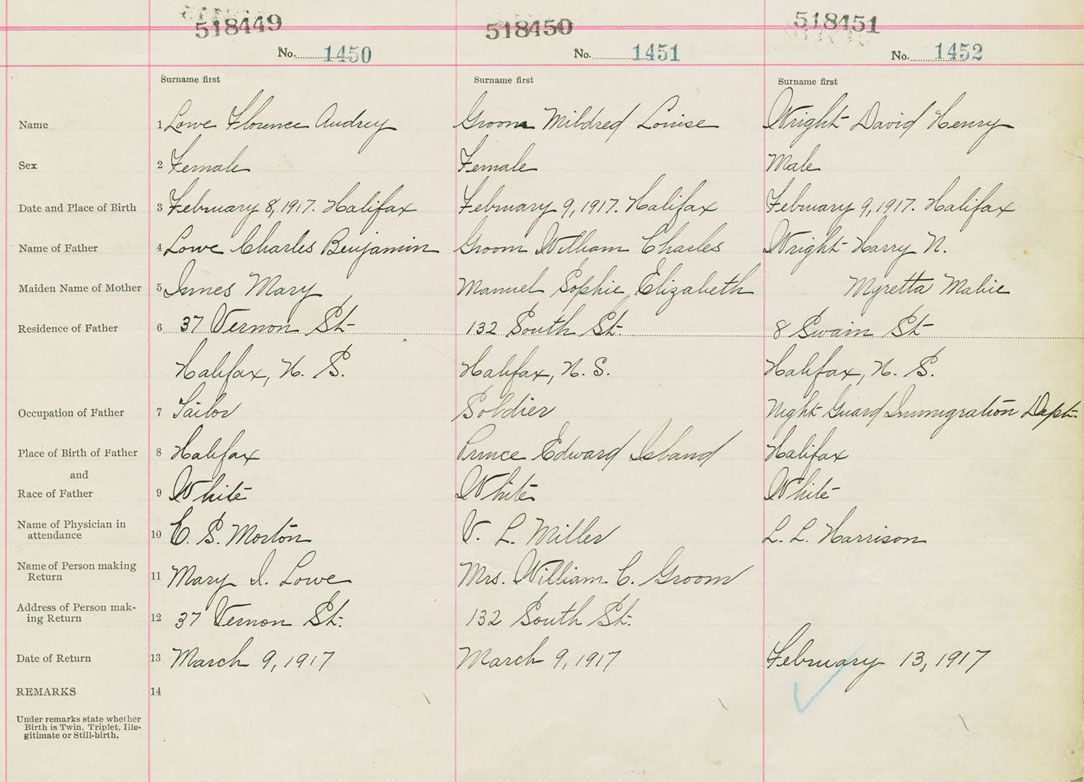 518449 518450 518451
No. 1450 No. 1451 No. 1452
Surname first Surname first Surname first
Name 1 Lowe Florence Audrey Groom Mildred Louise Wright David Henry
Sex 2 Female Female Male
Date and Place of Birth 3 February 8, 1917. Halifax February 9, 1917. Halifax February 9, 1917. Halifax
Name of Father 4 Lowe Charles Benjamin Groom William Charles Wright Harry N.
Maiden Name of Mother 5 Innes Mary Manuel Sophie Elizabeth Myretta
Residence of Father 6 37 Vernon St. 132 South St. 8 Swain St
Halifax, N. S. Halifax, N. S. Halifax, N. S.
Occupation of Father 7 Tailor Soldier Night Guard Immigration Dept.
Place of Birth of Father 8 Halifax Prince Edward Island Halifax
and
Race of Father 9 White White White
Name of Physician in
attendance 10 C. S. Morton V. L. Miller L. L. Harrison
Name of Person making
Return 11 Mary I. Lowe Mrs. William C. Groom
Address of Person mak-
ing Return 12 37 Vernon St. 132 South St.
Date of Return 13 March 9, 1917 March 9, 1917 February 13, 1917
REMARKS 14
Under remarks state whether
Birth is Twin. Triplet, Ille-
gitimate or Still-birth.